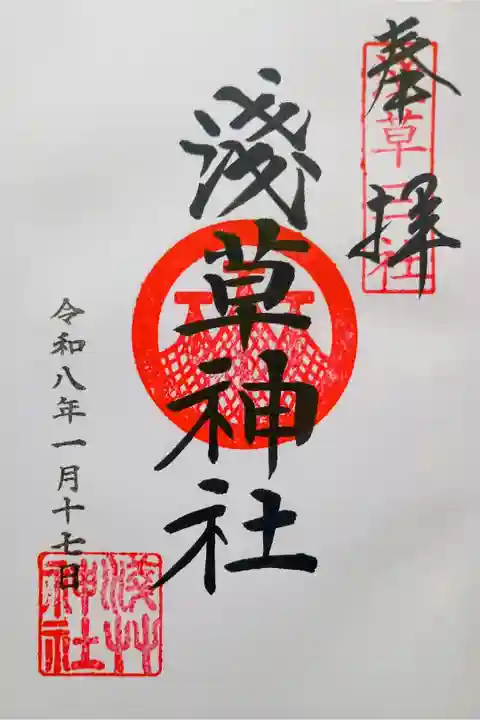 奉拝
淺草神社
令和八年一月十七日
浅草神社